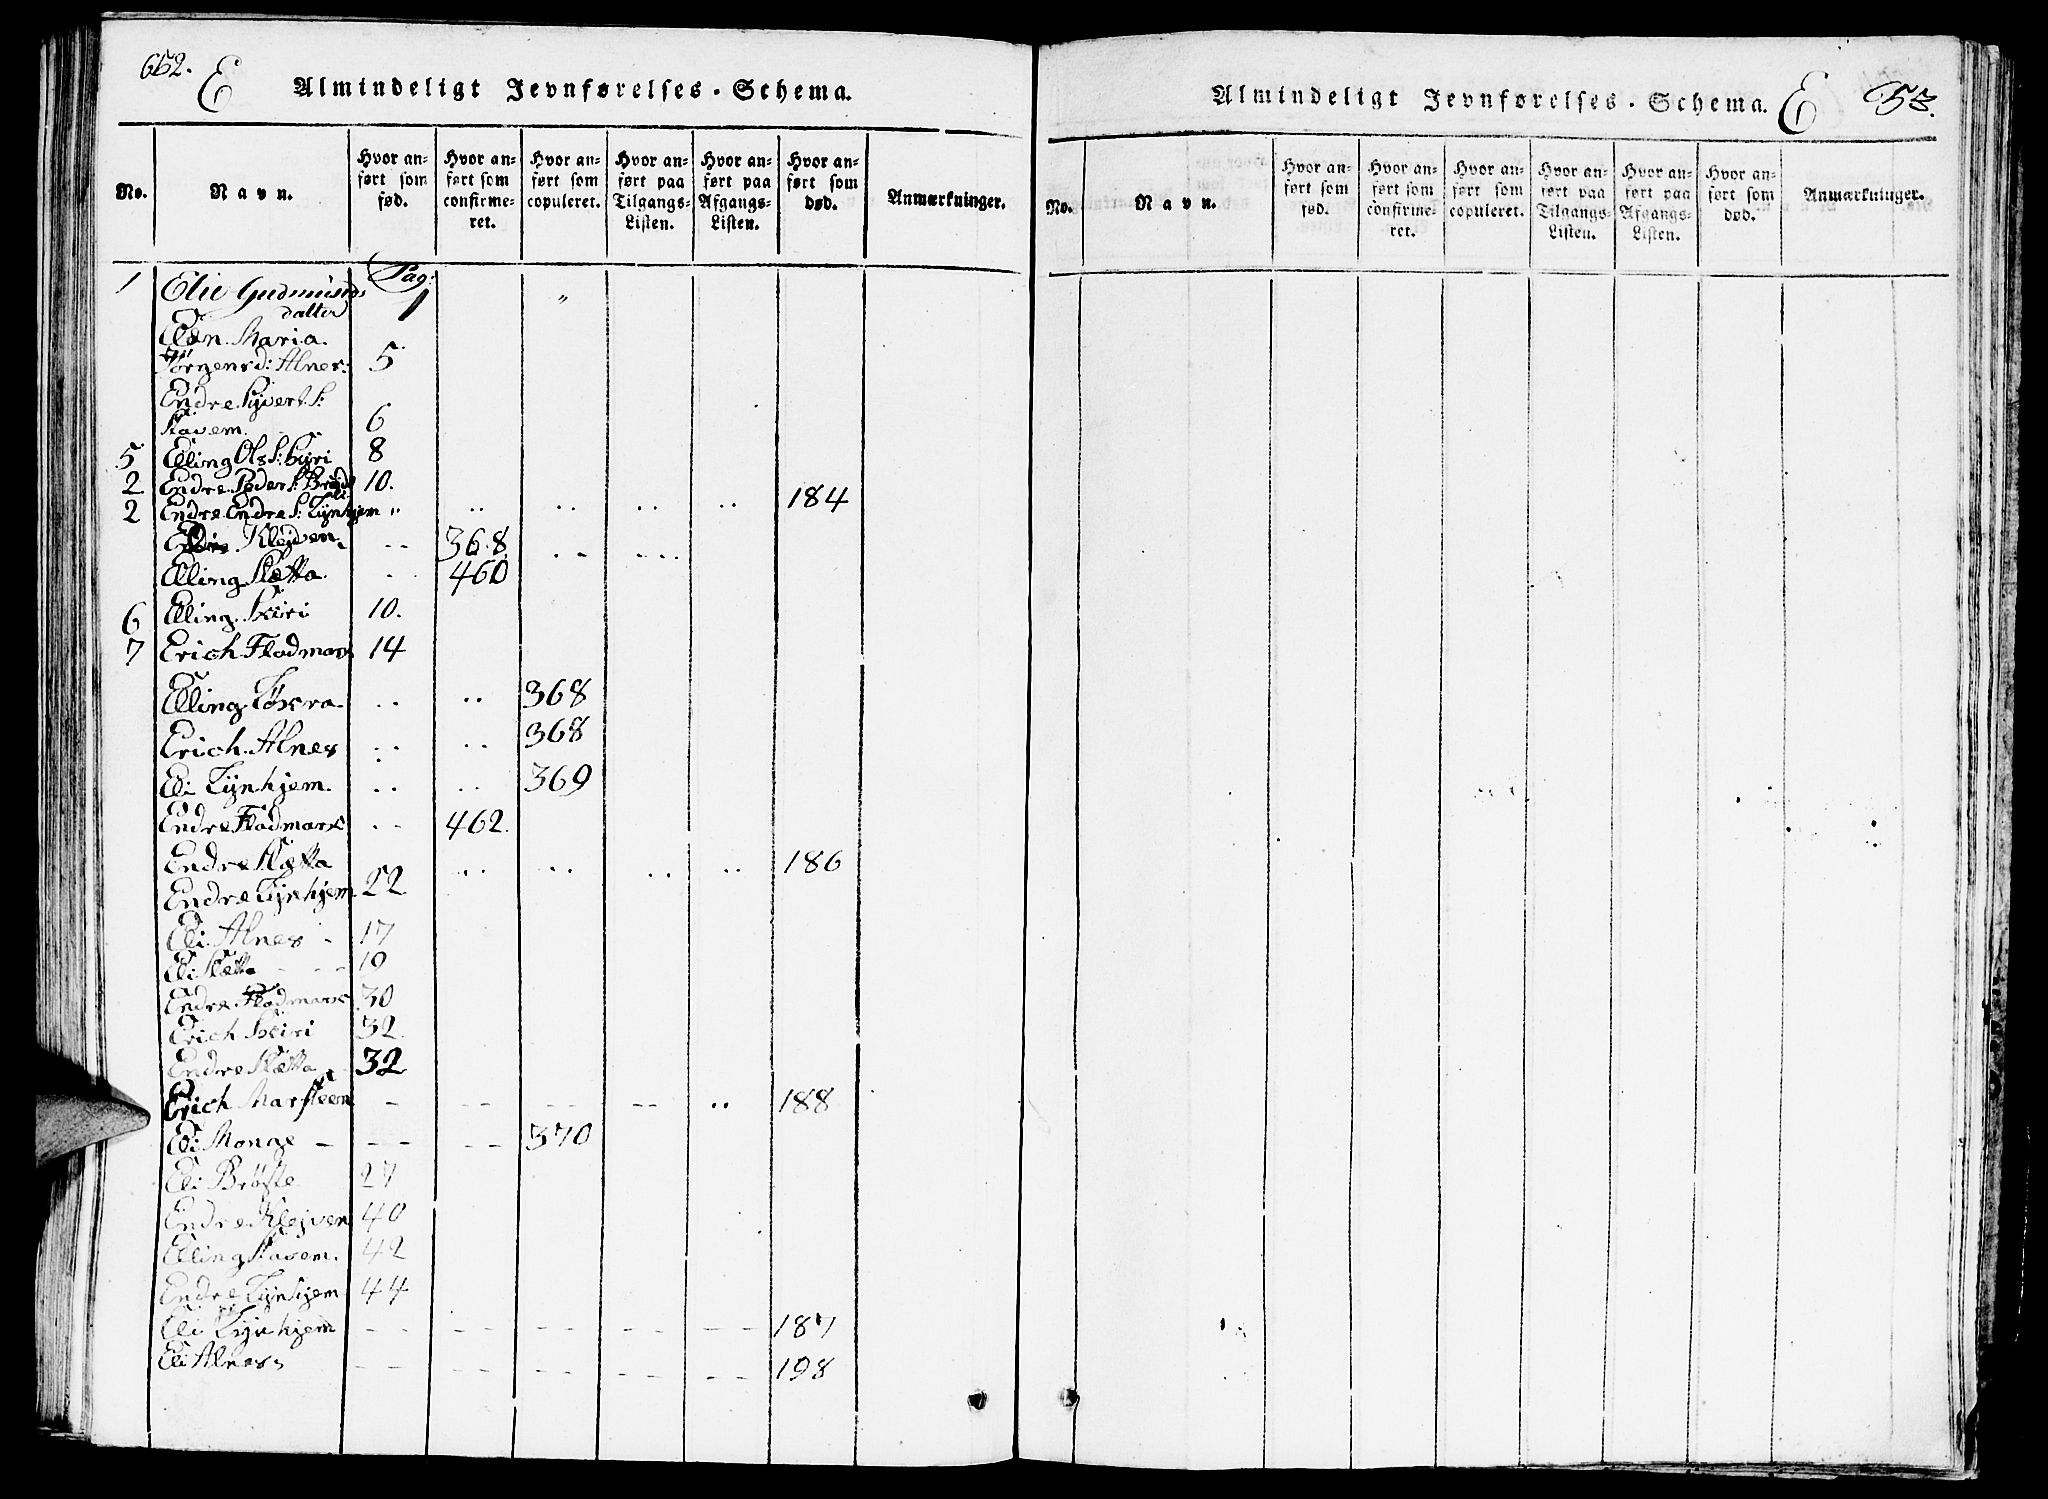 652.
E
Almindeligt Jevnførelses-Schema.
No.
Navn.
Hvor anført som fød.
Hvor anført som confirmeret.
Hvor anført som copuleret.
Hvor anført paa Tilgangs-Listen.
Hvor anført paa Afgangs-Listen.
Hvor anført som død.
Anmærkninger.
Pag:
1 Elie Gudmunds
datter 1 "
Elen Maria
Jørgensd: Alnes: 5
Endre Syvert S:
Skavem 6
5 Elling Ols S: Skiri 8
2 Endre Peders S: Brude 10.
2 Endre Endre S: Lynhjem " .. .. .. .. 184
Klejven -- 368. .. ...
Elling Slætta .. 460
6 Elling Skiri 10.
7 Erich Fladmark 14
Elling .. .. 368
Erich Alnes .. .. 368
Eli Lynhjem .. .. 369
Endre Fladmark .. 462.
Endre Slætta .. .. .. .. 186
Endre Lynhjem 22
Eli Alnes - 17
Eli Slætta - - - 19
Endre Fladmark 30
Erich Skiri 32
Endre Slætta - 32
Erich Marsteen - -- -- -- .. 188
Eli Monge - -- -- 370
Eli Brøste 27
Endre Klejven 40
Elling Skavem. 42
Endre Lynhjem 44
Eli Lynhjem -- -- -- -- -- 187
Eli Alnes -- -- -- -- -- 198
Almindeligt Jevnførelses-Schema.
E
53.
No.
Navn.
Hvor anført som fød.
Hvor anført som confirmeret.
Hvor anført som copuleret.
Hvor anført paa Tilgangs-Listen.
Hvor anført paa Afgangs-Listen.
Hvor anført som død.
Anmærkninger.